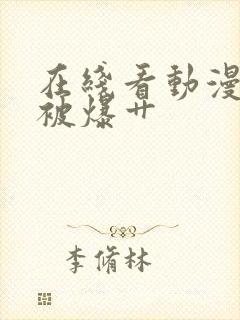 在綫看動漫
被爆艹
李脩林